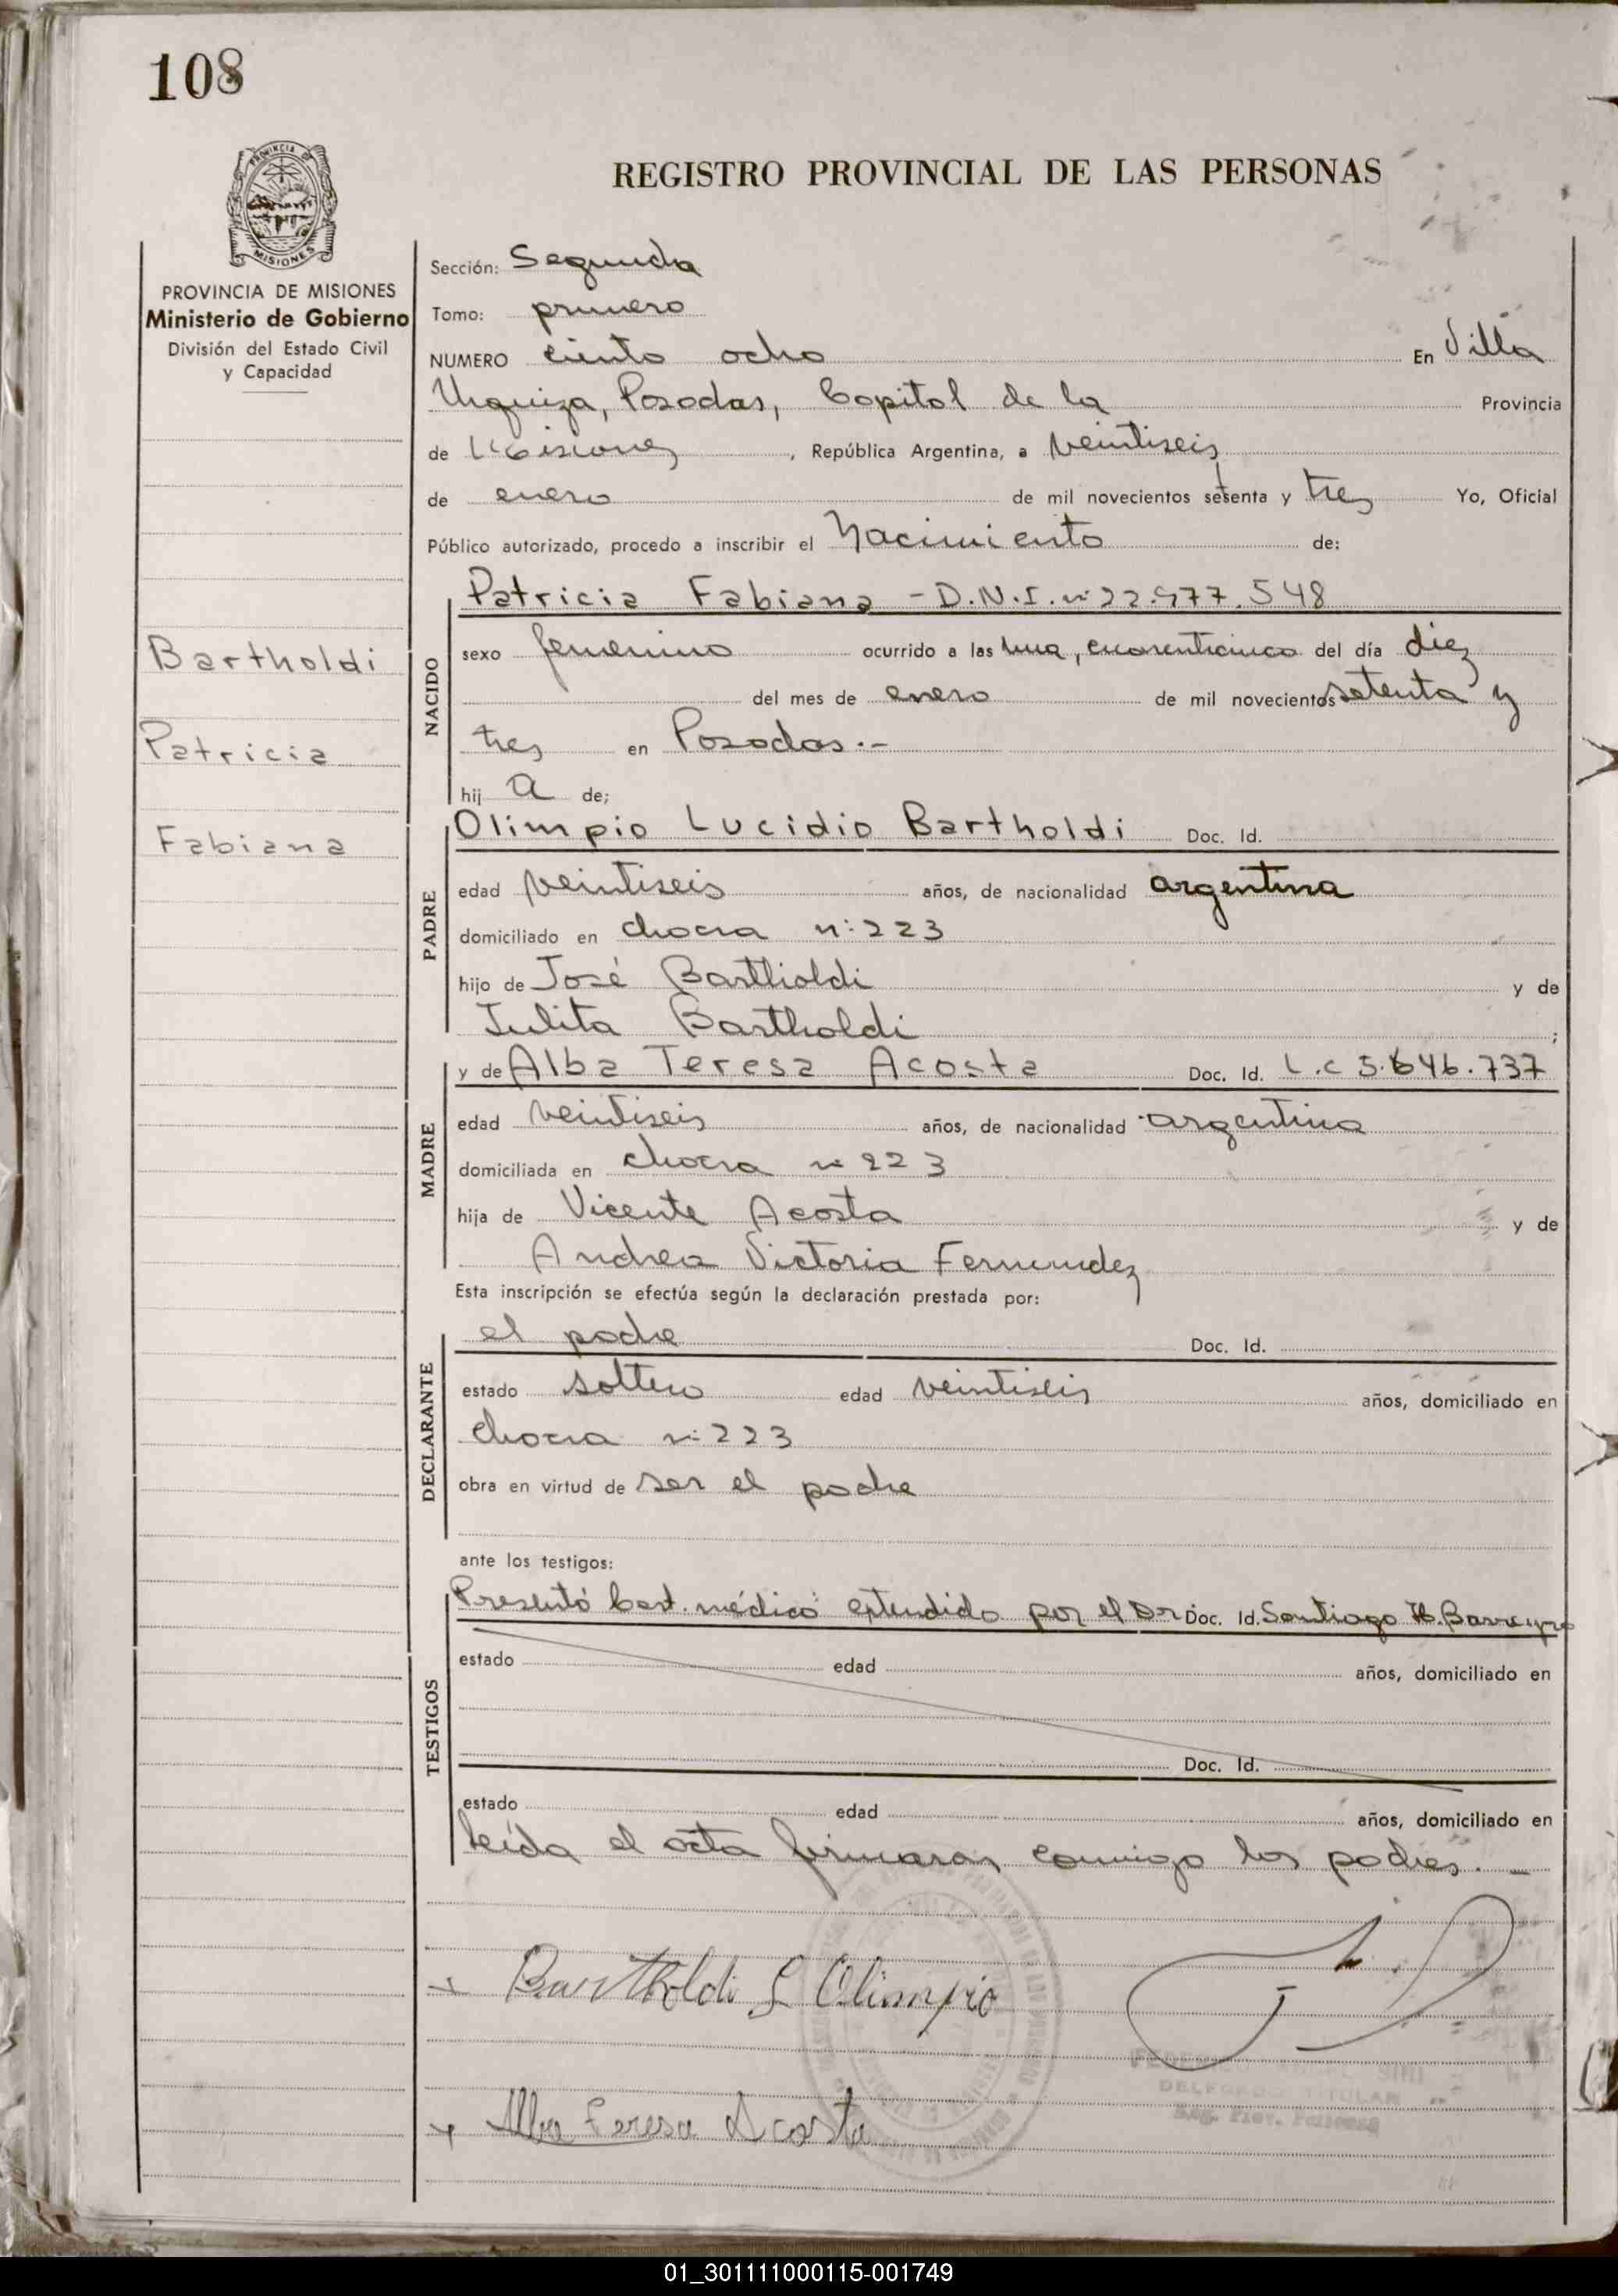 108
REGISTRO PROVINCIAL DE LAS PERSONAS
PROVINCIA DE MISIONES
Ministerio de Gobierno
División del Estado Civil
y Capacidad
Bartholdi
Patricia
Fabiana
Sección: Segunda
Tomo: primero
NUMERO ciento ocho En Villa
Urquiza, Posadas, Capital de la Provincia
de Misiones, República Argentina, a veintiseis
de enero de mil novecientos setenta y tres Yo, Oficial
Público autorizado, procedo a inscribir el Nacimiento de:
NACIDO
Patricia Fabiana - D.N.I. nº 22.977.548
sexo femenino ocurrido a las una, cuarenticinco del día diez
del mes de enero de mil novecientos setenta y
tres en Posadas.-
hij a de;
PADRE
Olimpio Lucidio Bartholdi Doc. Id.
edad veintiseis años, de nacionalidad argentina
domiciliado en chacra n: 223
hijo de José Bartholdi y de
Julita Bartholdi ;
MADRE
y de Alba Teresa Acosta Doc. Id. L.C 5.646.737
edad veintiseis años, de nacionalidad argentina
domiciliada en chacra nº 223
hija de Vicente Acosta y de
Andrea Victoria Fernandez
Esta inscripción se efectúa según la declaración prestada por:
DECLARANTE
el padre Doc. Id.
estado soltero edad veintiseis años, domiciliado en
chacra n: 223
obra en virtud de ser el padre
ante los testigos:
TESTIGOS
Presentó Cert. médico extendido por el Dr. Doc. Id. Santiago H. Barreyro
estado edad años, domiciliado en
Doc. Id.
estado edad años, domiciliado en
leída el acta firmaran conmigo los padres. -
Bartholdi L Olimpio
DELEGADO TITULAR
Alba Teresa Acosta
01_301111000115-001749